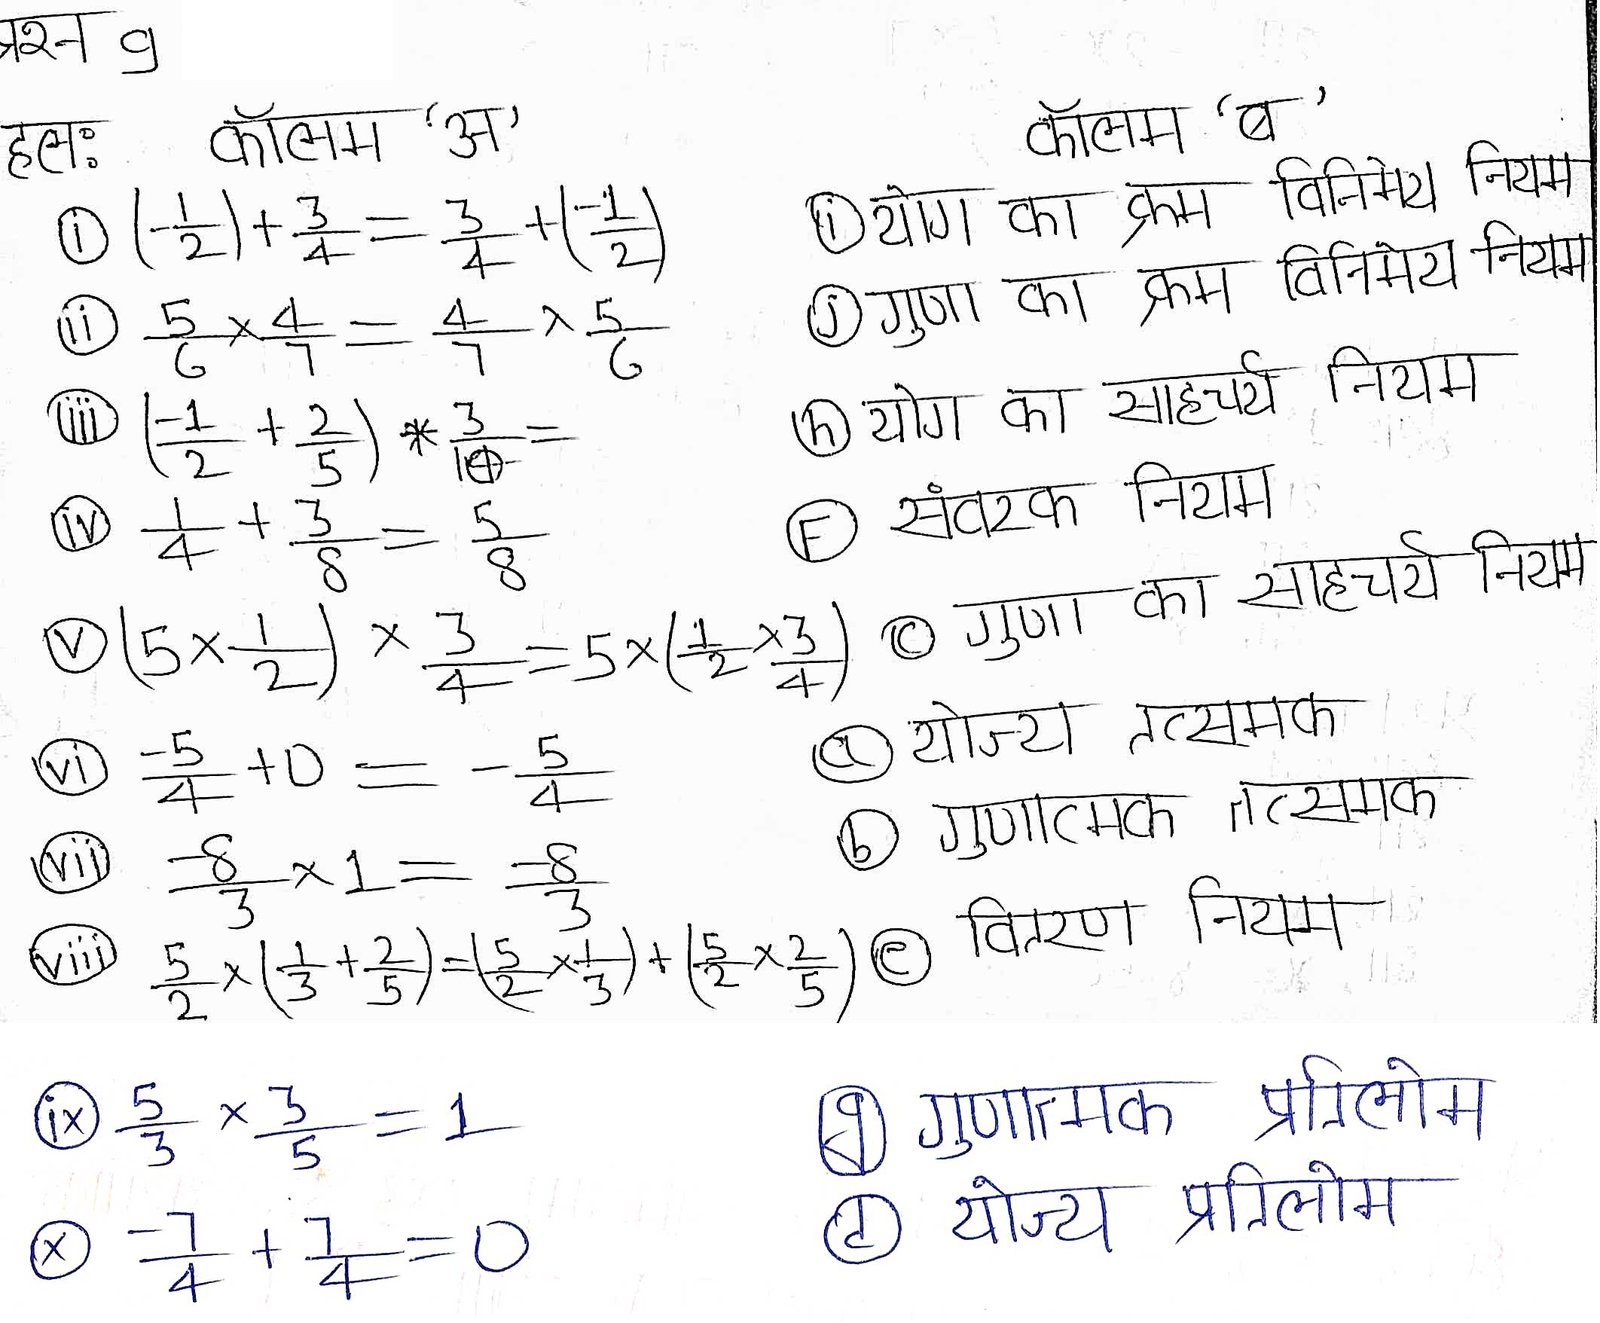 प्रश्न 9
हलः कॉलम 'अ' कॉलम 'ब'
(i) (-1/2) + 3/4 = 3/4 + (-1/2) (i) योग का क्रम विनिमेय नियम
(ii) 5/6 × 4/7 = 4/7 × 5/6 (j) गुणा का क्रम विनिमेय नियम
(iii) (-1/2 + 2/5) * 3/10 = (h) योग का साहचर्य नियम
(iv) 1/4 + 3/8 = 5/8 (F) संवरक नियम
(v) (5 × 1/2) × 3/4 = 5 × (1/2 × 3/4) (c) गुणा का साहचर्य नियम
(vi) -5/4 + 0 = -5/4 (a) योज्य तत्समक
(vii) -8/3 × 1 = -8/3 (b) गुणात्मक तत्समक
(viii) 5/2 × (1/3 + 2/5) = (5/2 × 1/3) + (5/2 × 2/5) (e) वितरण नियम
(ix) 5/3 × 3/5 = 1 (g) गुणात्मक प्रतिलोम
(x) -7/4 + 7/4 = 0 (d) योज्य प्रतिलोम